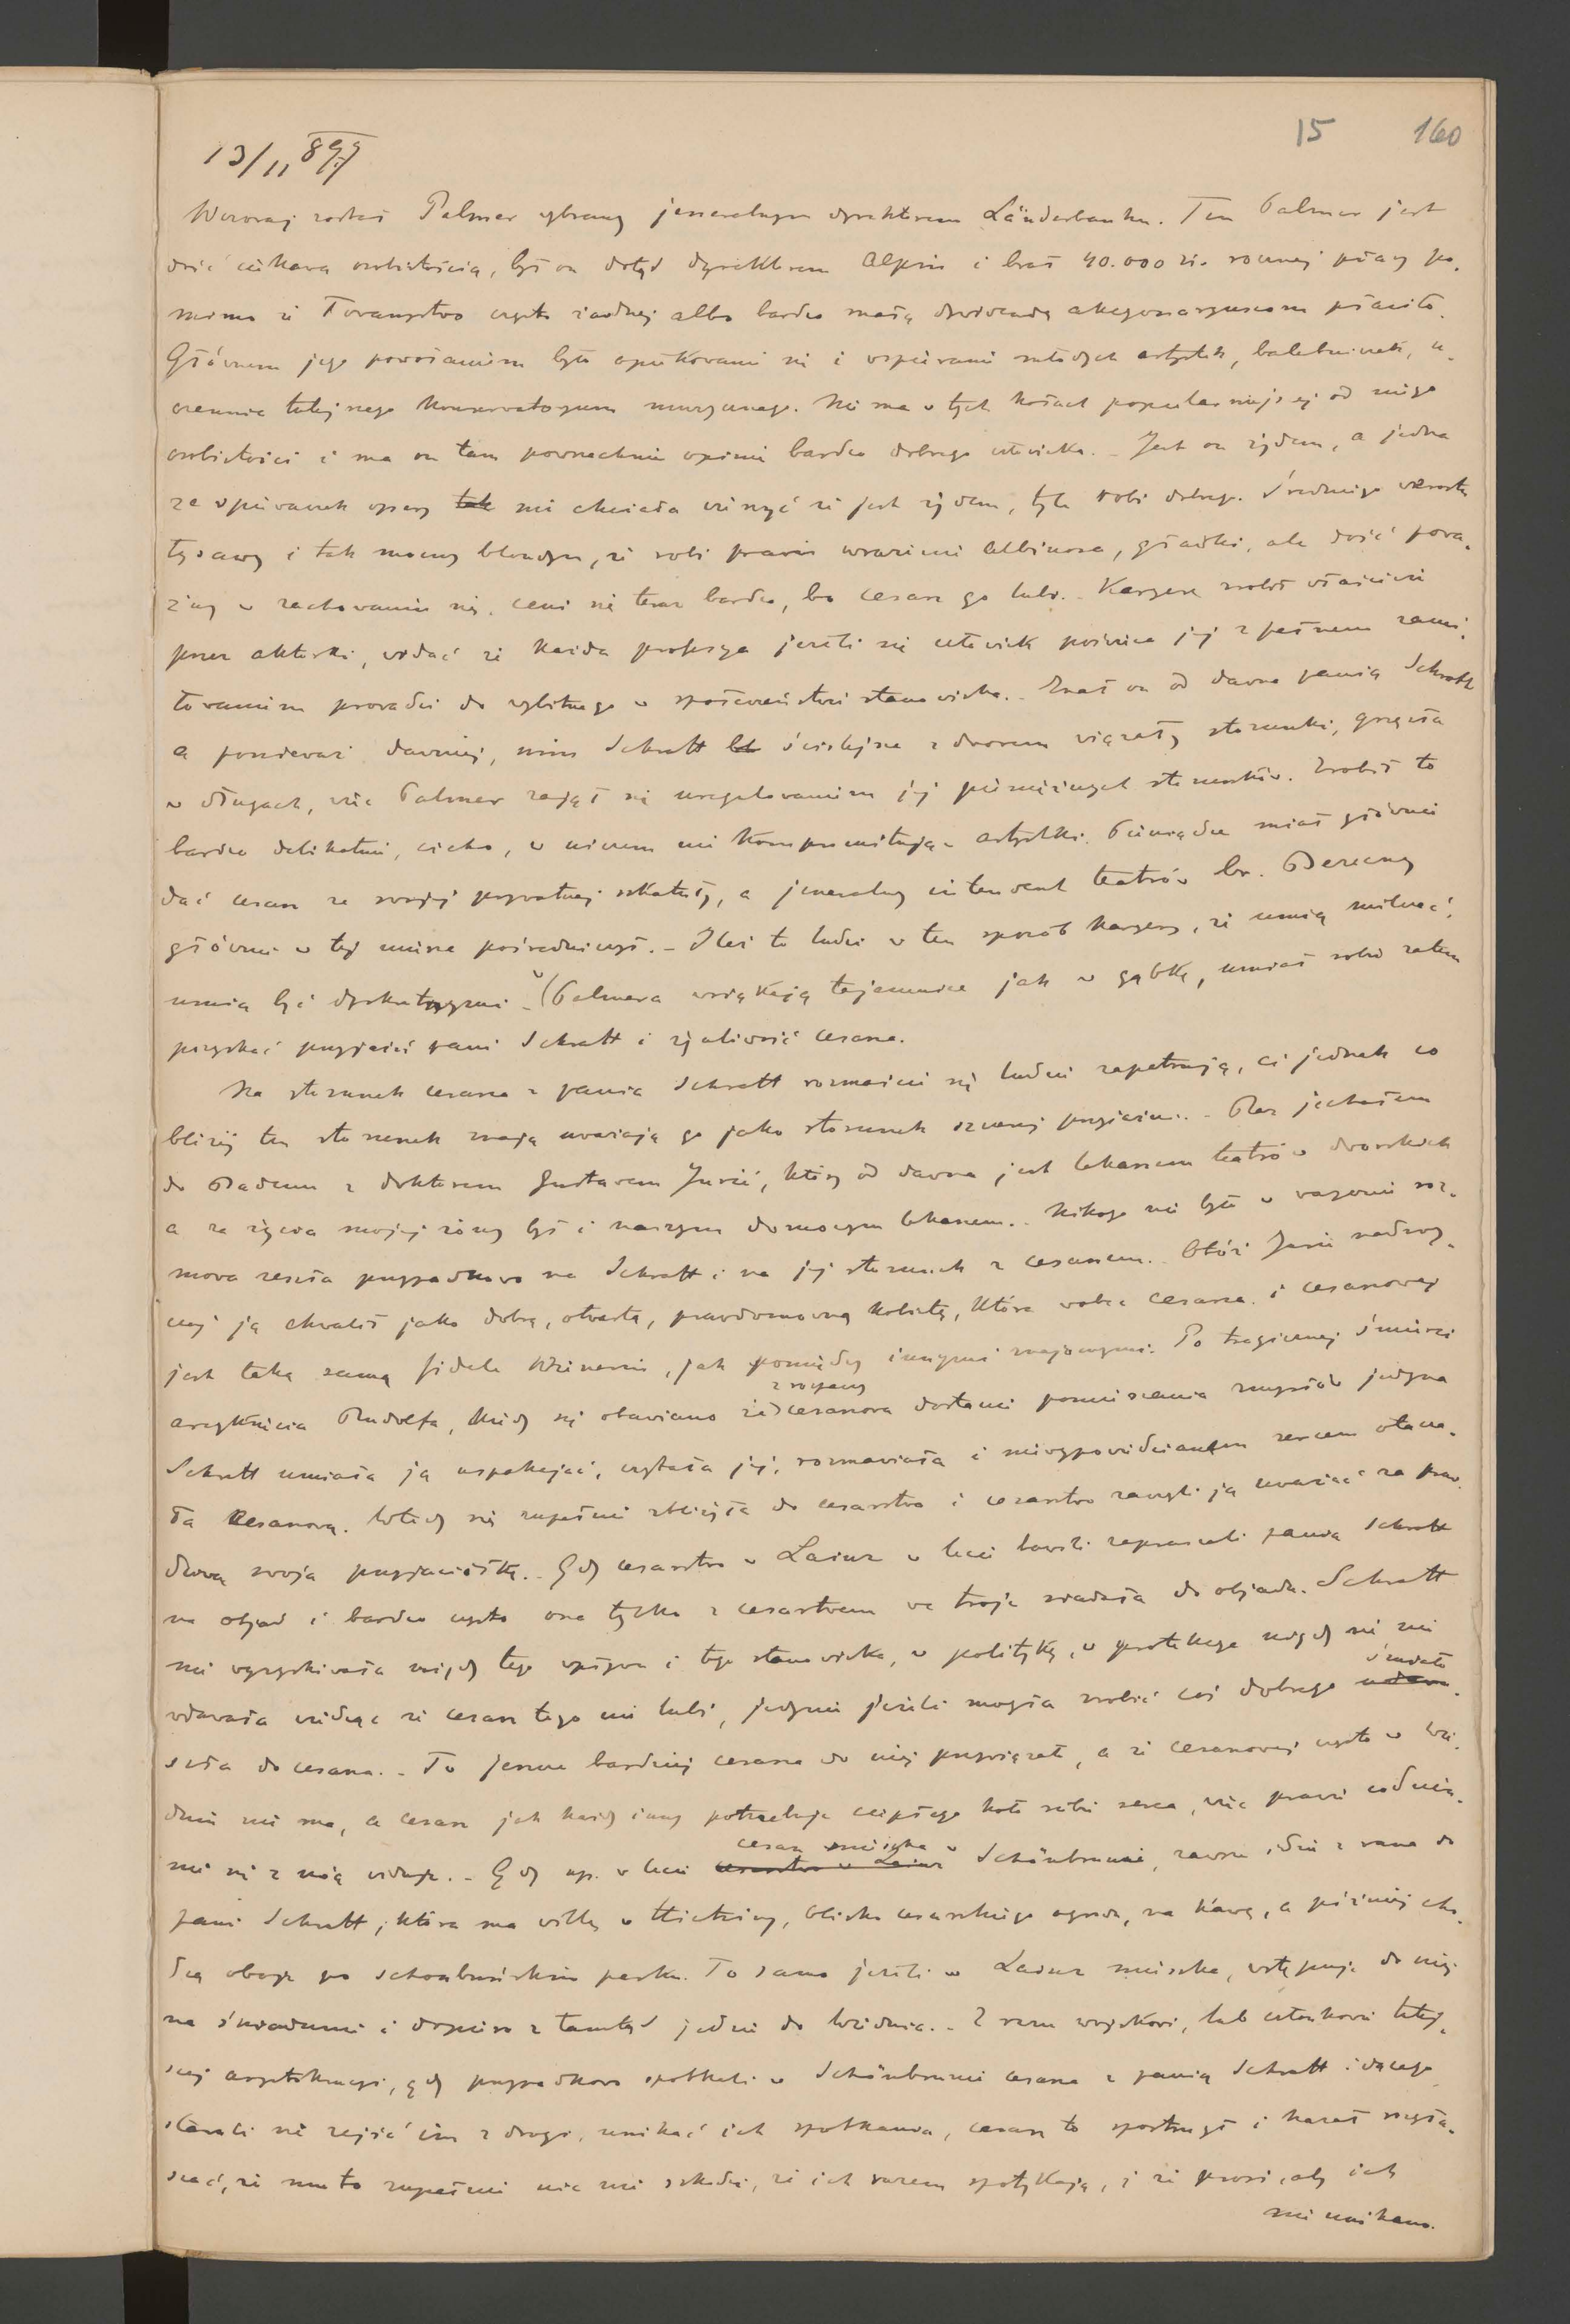 15 160
13/11 897
Wczoraj został Palmer wybrany jeneralnym dyrektorem Länderbanku. Ten Palmer jest
dość ciekawą osobistością, był on dotąd dyrektorem Alpin i brał 40.000 zł. rocznej płacy po-
mimo iż Towarzystwo często żadnej albo bardzo małą dywidendę akcyonaryuszom płaciło.
Głównem jego powołaniem było opiekowanie się i wspieranie młodych artystek, baletniczek, u-
czennic tutejszego Konserwatoryum muzycznego. Nie ma w tych kołach popularniejszej od niego
osobistości i ma on tam powszechnie opinię bardzo dobrego człowieka. – Jest on żydem, a jedna
ze śpiewaczek opery nie chciała wierzyć że jest żydem, tyle robi dobrego. Średniego wzrostu
łysawy i tak mocny blondyn, że robi prawie wrażenie Albinosa, gładki, ale dość powa-
żny w zachowaniu się, ceni się teraz bardzo, bo cesarz go lubi. – Karyerę zrobił właściwie
przez aktorki, widać że każda profesya jeżeli się człowiek poświęca jej z pełnem zami-
łowaniem prowadzi do wybitnego w społeczeństwie stanowiska. – Znał on od dawna panią Schratt
a ponieważ dawniej, nim Schratt ściślejsze z dworem wiązały stosunki, grzęzła
w długach, więc Palmer zajął się uregulowaniem jej pieniężnych stosunków. Zrobił to
bardzo delikatnie, cicho, w niczem nie kompromitując artystki. Pieniądze miał głównie
dać cesarz ze swojej prywatnej szkatuły, a jeneralny intendent teatrów br. Bezecny
głównie w tej mierze pośredniczył. – Ileż to ludzi w ten sposób karyerę, że umią milczeć,
umią być dyskretnymi – W Palmera wsiąkają tajemnice jak w gąbkę, umiał sobie zatem
pozyskać przyjaźń pani Schratt i życzliwość cesarza.
Na stosunek cesarza z panią Schratt rozmaicie się ludzie zapatrują, ci jednak co
bliżej ten stosunek znają uważają go jako stosunek szczerej przyjaźni. – Raz jechałem
do Badenu z doktorem Gustavem Jurié, który od dawna jest lekarzem teatrów dworskich
a za życia mojej żony był i naszym domowym lekarzem. – Nikogo nie było w wagonie roz-
mowa zeszła przypadkowo na Schratt i na jej stosunek z cesarzem. – Otóż Jurié nadzwy-
czaj ją chwalił jako dobrą, otwartą, prawdomówną kobietę, która wobec cesarza i cesarzowej
jest taką samą fidele Wienerin, jak pomiędzy innymi znajomymi. Po tragicznej śmierci
arcyksięcia Rudolfa, kiedy się obawiano że z rozpaczy cesarzowa dostanie pomieszania zmysłów jedyna
Schratt umiała ją uspokajać, czytała jej, rozmawiała i niewypowiedzianem sercem otacza-
ła cesarzową. Wtedy się zupełnie zbliżyła do cesarstwa i cesarstwo zaczęli ją uważać za praw-
dziwą swoją przyjaciółkę. – Gdy cesarstwo w Lainz w lecie bawili zapraszali panią Schratt
na objad i bardzo często ona tylko z cesarstwem we troje siadała do objadu. Schratt
nie wyzyskiwała nigdy tego wpływu i tego stanowiska, w politykę, w protekcye nigdy się nie
wdawała widząc że cesarz tego nie lubi, jedynie jeżeli mogła zrobić coś dobrego śmiało
szła do cesarza. – To jeszcze bardziej cesarza do niej przywiązało, a że cesarzowej często w Wie-
dniu nie ma, a cesarz jak każdy inny potrzebuje ciepłego koło siebie serca, więc prawie codzien-
nie się z nią widuje. – Gdy np. w lecie <s>cesarstwo w Lainz</s> cesarz mieszka w Schönbrunnie, zawsze idzie z rana do
pani Schratt, która ma willę w Hietzing, blisko cesarskiego ogrodu, na kawę, a później cho-
dzą oboje po schönbruńskim parku. To samo jeżeli w Lainz mieszka, wstępuje do niej
na śniadanie i dopiero z tamtąd jedzie do Wiednia. – Z razu wojskowi, lub członkowie tutej-
szej arystokracyi, gdy przypadkowo spotkali w Schönbrunnie cesarza z panią Schratt idącego
starali się zejść im z drogi, unikać ich spotkania, cesarz to spostrzegł i kazał ogła-
szać, że mu to zupełnie nic nie szkodzi, że ich razem spotykają, i że prosi, aby ich
nie unikano.